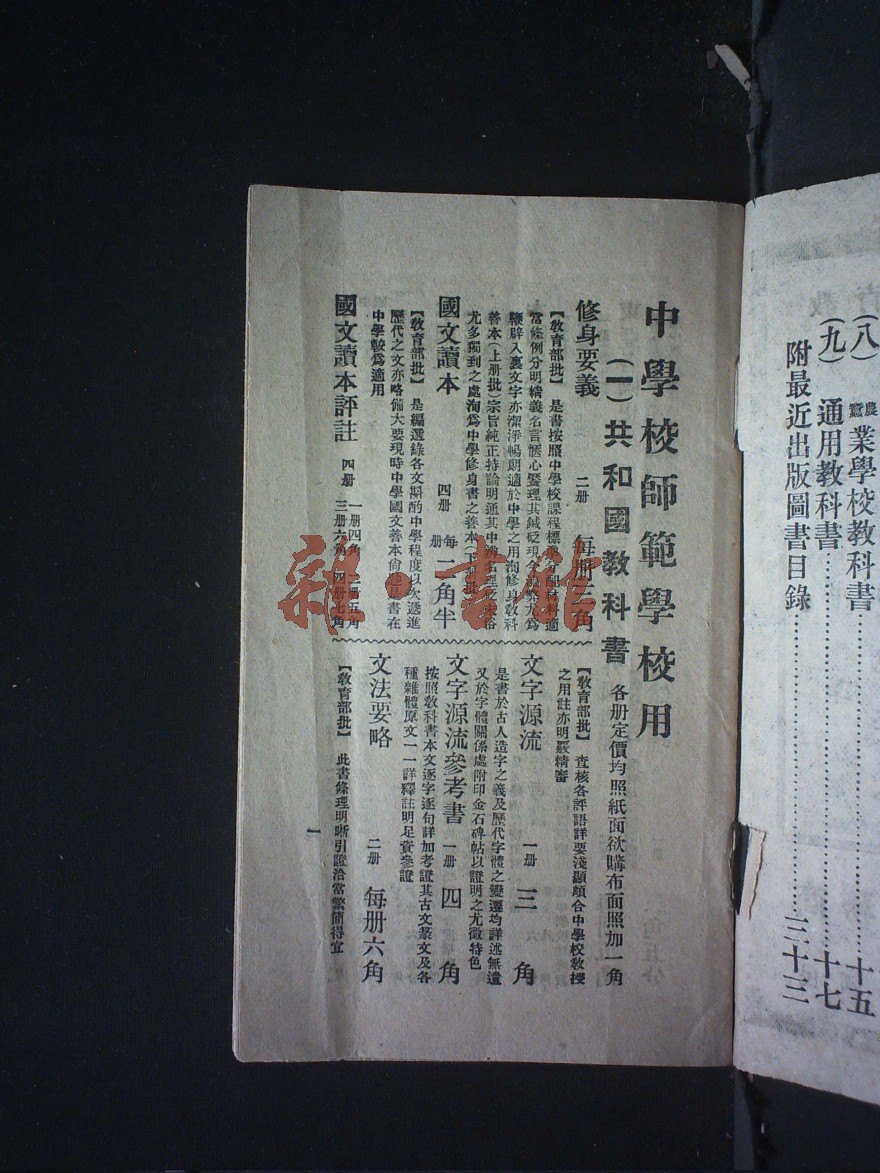 中學校師範學校用
(一)共和國教科書 各册定價均照紙面欲購布面照加一角
修身要義 二册 每册三角
【敎育部批】 是書按照中學校課程標準分配材料適
當條例分明精義名言愜心饜理其鍼砭現今
鞭辟入裏文字亦潔淨暢朗適於中學之用洵修身敎科
善本(上册批)宗旨純正持論明通其中
尤多獨到之處洵爲中學修身書之善本(下册批)
國文讀本 四册 每册二角半
【敎育部批】 是編選錄各文斟酌中學程度以次遞進
歷代之文亦略備大要現時中學國文善本尙 是書在
中學較爲適用
國文讀本評註 四册 一册四角 二册五角 三册六角 四册七角
【敎育部批】 查核各評語詳要淺顯頗合中學校敎授
之用註亦明覈精審
文字源流 一册 三角
是書於古人造字之義及歷代字體之變遷均詳述無遺
又於字體關係處附印金石碑帖以證明之尤徵特色
文字源流參考書 一册 四角
按照敎科書本文逐字逐句詳加考證其古文篆文及各
種雜體原文一一詳釋註明足資參證
文法要略 二册 每册六角
【敎育部批】 此書條理明晰引證洽當繁簡得宜
一
(八) 農蠶業學校教科書 十五
(九) 通用教科書 十七
附最近出版圖書目錄 三十三
雜·書館